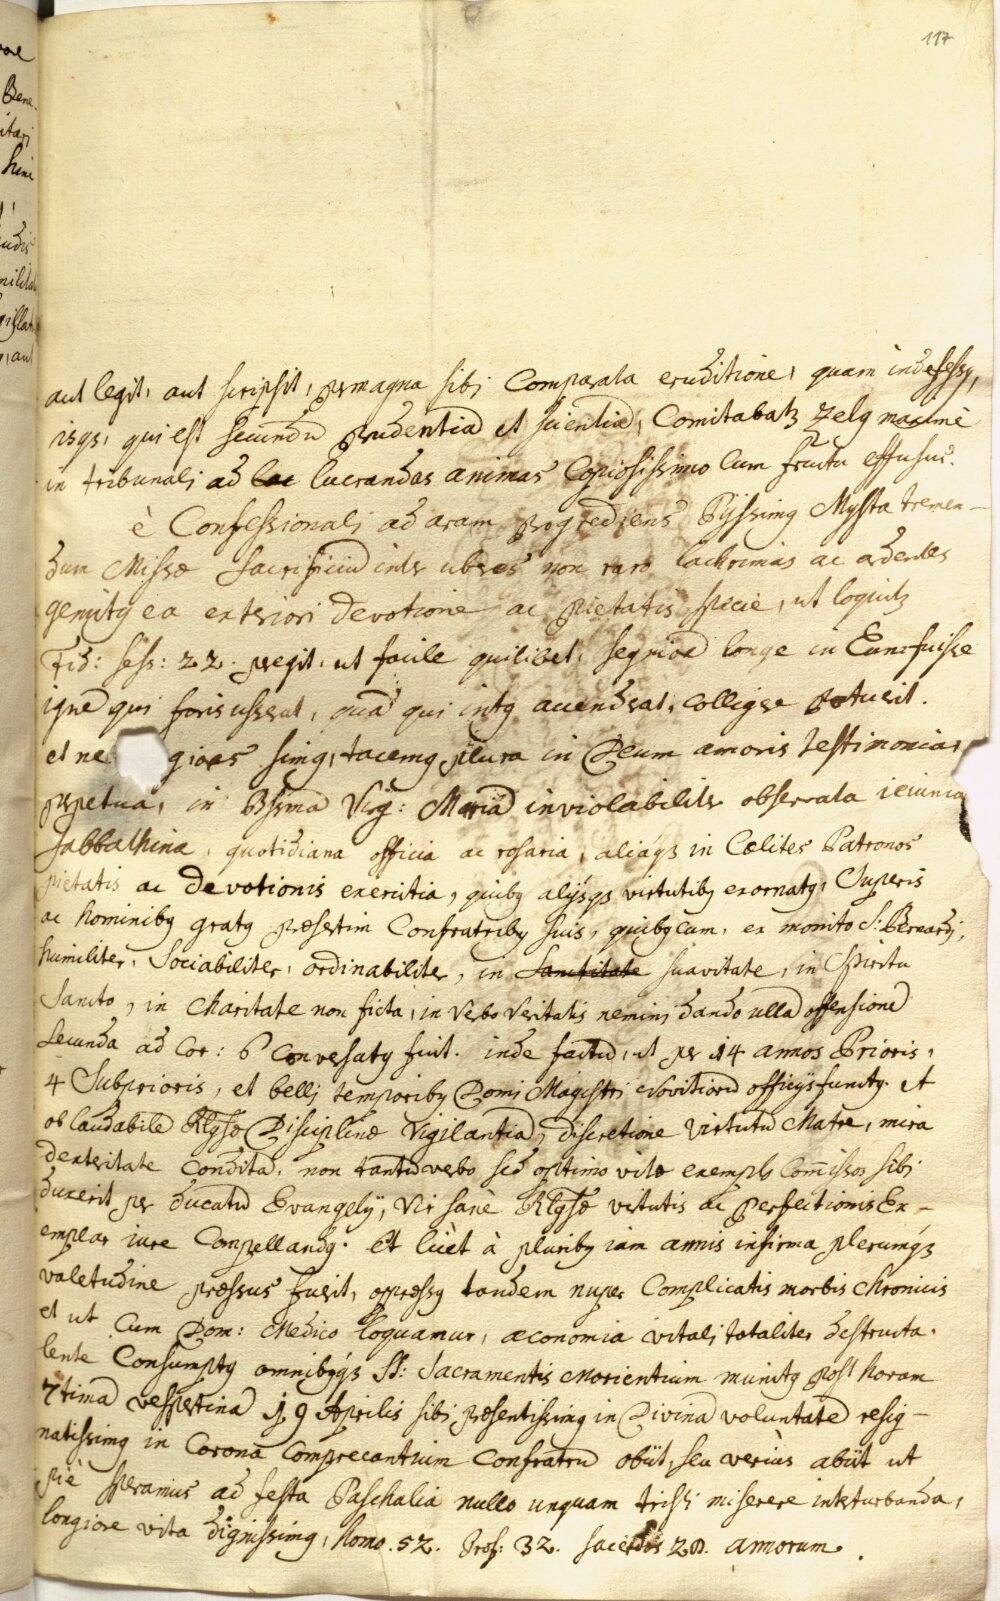 117
aut legit, aut scripsit, permagna sibi comparata eruditione, quam indefessus,
isqs, qui est secundũ prudentiã et scientiã, Comitabatz zelus maximè
in tribunali ad lucrandas animas Copiosissimo cum fructu effusus.
è Confessionali ad aram progrediens Pijssimus Mysta tremen-
dum Missæ Sacrificiũ inter uberes non raro lachrimas ac ardentes
gemitus ea exteriori devotione ac pietatis specie, ut loquitz
Trid: sess: 22. peregit, ut facile quilibet, segniorẽ longe in Eum fuisse
ignẽ qui foris usserat, quã qui intus accenderat, colligere potuerit.
et ne giores simus, tacemus plura in Deum amoris testimonia,
perpetua, in Bssmã Virg: Mariã inviolabiliter observata ieiunia
Sabbathina, quotidiana officia ac rosaria, aliaqz in Cælites Patronos
pietatis ac devotionis exercitia, quibus alijsqs virtutibus exornatus, Superis
ac hominibus gratus præsertim Confratribus suis, quibuscum, ex monito S: Bernardi,
humiliter, Sociabiliter, ordinabiliter, in Sanctitate suavitate, in Spiritu
Sancto, in Charitate non ficta, in Verbo Veritatis nemini dando ullã offensionẽ
Secunda ad Cor: 6 Conversatus fuit. inde factũ, ut per 14 annos Prioris,
4 Subprioris, et belli temporibus Domi Magistri Novitiorũ officijs functus. et
ob laudabilẽ Rlgsæ Disciplinæ Vigilantiã, discretione virtutũ Matre, mira
dexteritate conditã, non tantũ verbo sed optimo vitæ exemplo Com̃issos sibi
duxerit per ducatũ Evangelij, Vir sanè Rlgsæ virtutis ac perfectionis Ex-
emplar iure Compellandus. et licèt à pluribus iam annis infirma plerumqz
valetudine pressus fuerit, oppressus tandem nuper Complicatis morbis Chronicis
et ut Cum Dom: Medico loquamur, œconomia vitali totaliter destructa.
lente Consumptus omnibusqz SS: Sacramentis Morientium munitus post horam
7timã vespertinã 19 Aprilis sibi præsentissimus in Divinã voluntatẽ resig-
natissimus in Corona Comprecantium Confratrũ obijt, seu veriùs abijt ut
piè speramus ad festa Paschalia nullo unquam tristi miserere interturbanda,
longiore vita dignissimus, homo. 52. Prof: 32. sacerdos 28. annorum.